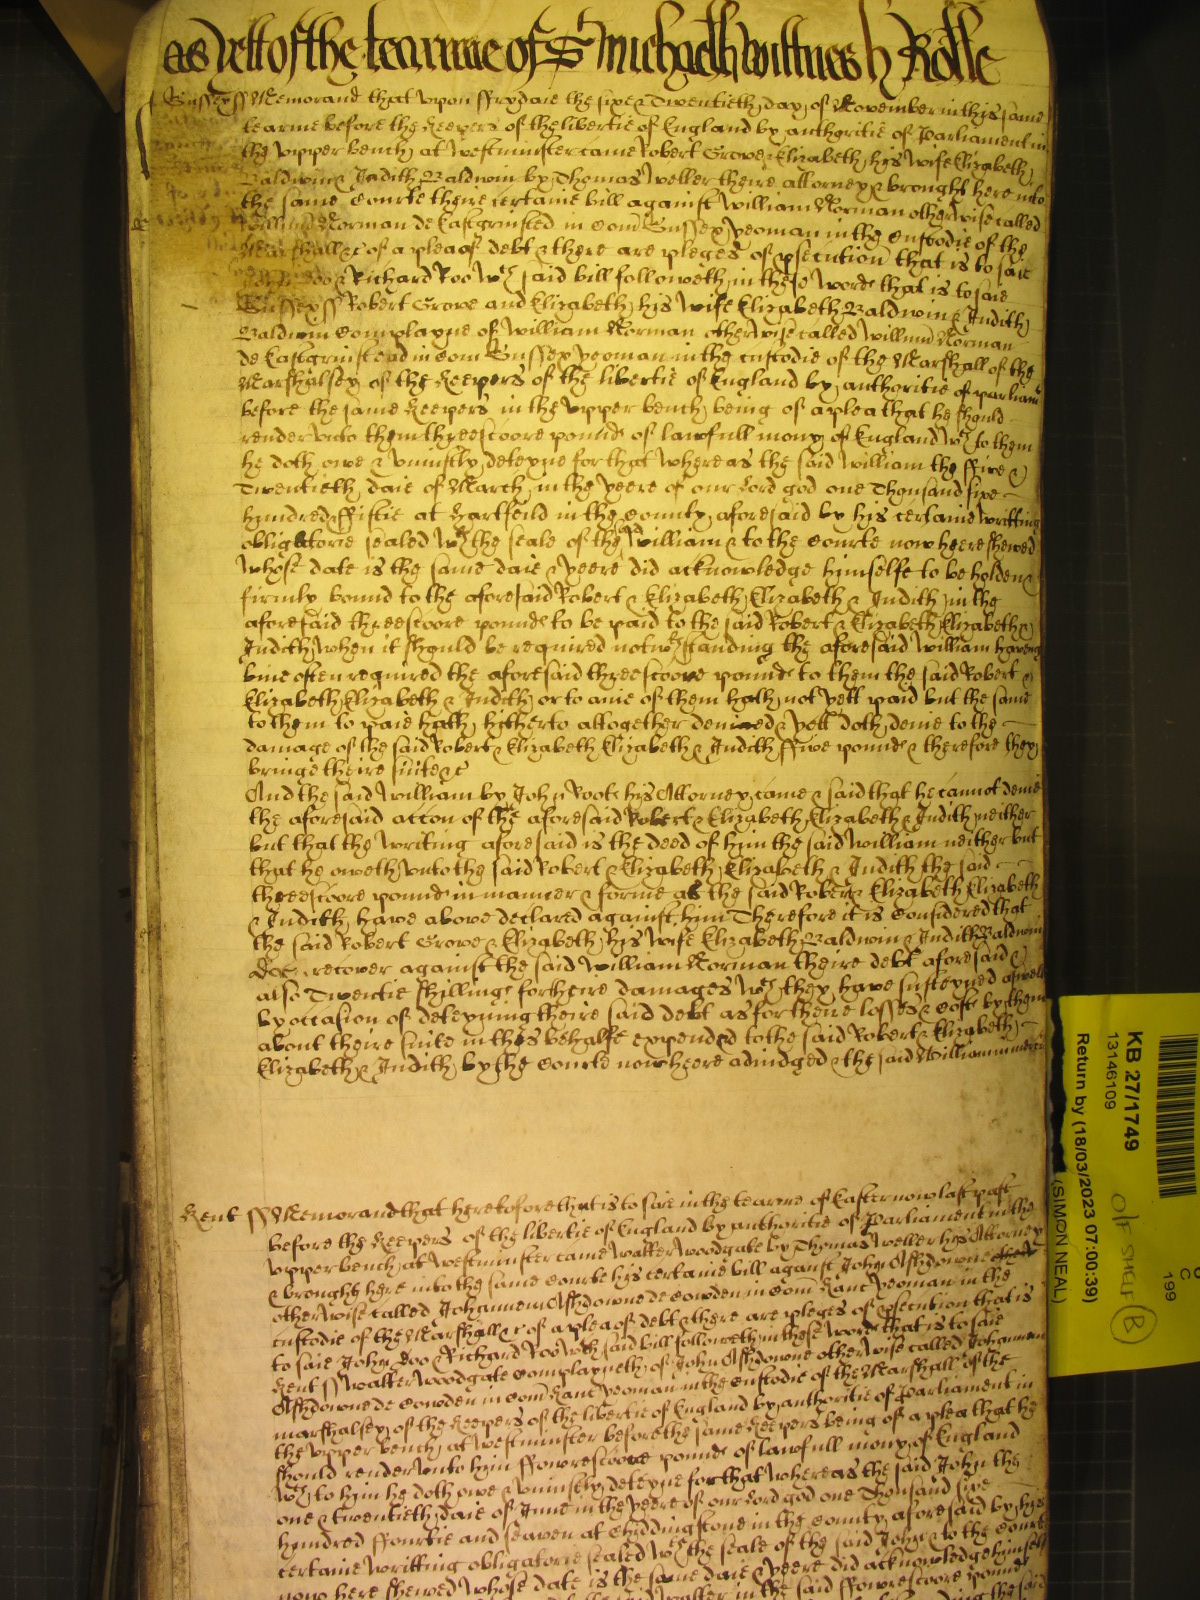 as yett of the tearme of St Michaell wittnes h Rolle
Sussex ss Memorand that upon ffrydaie the sixe & Twentieth day of November in this same
tearme before the Keepers of the libertie of England by authoritie of Parliament in
the upper bench at westminster came Robert Grove & Elizabeth his wife Elizabeth
Baldwin & Judith Baldwin by Thomas Weller theire attorney & brought here into
the same Courte theire certaine bill against William Norman otherwise called
Willm Norman de Eastgrinsted in Com Sussex yeoman in the Custodie of the
Marshall &c of a plea of debt & there are pleges of psecution that is to saie
John Doo & Richard Roo wch said bill followeth in these words that is to saie
Sussex ss Robert Grove and Elizabeth his wife Elizabeth Baldwin & Judith
Baldwin Complayne of William Norman otherwise called Willm Norman
de Eastgrinstead in Com Sussex yeoman in the custodie of the Marshall of the
Marshalsey of the Keepers of the libertie of England by authoritie of parliam
before the same Keepers in the upper bench being of a plea that he should
render unto them threescoore pounds of lawfull mony of England wch to them
he doth owe & uniustly deteyne for that whereas the said William the ffive &
Twentieth daie of March in the yeere of our Lord god one Thousand sixe
hundred & ffiftie at Hartfeild in the County aforesaid by his certaine writting
obligatorie sealed wth the seale of the said William & to the Courte now heere shewed
whose date is the same daie & yeere did acknowledge himselfe to be holden &
firmly bound to the aforesaid Robert & Elizabeth Elizabeth & Judith in the
aforesaid threescoore pounds to be paid to the said Robert & Elizabeth Elizabeth &
Judith when it should be required notwthstanding the aforesaid William haveing
bine often required the aforesaid threescoore pounds to them the said Robert &
Elizabeth Elizabeth & Judith or to anie of them hath not yett paid but the same
to them to paie hath hitherto altogether denied & yett doth denie to the
damage of the said Robert & Elizabeth Elizabeth & Judith ffive pounds & therefore they
bringe theire suite &c
And the said William by John Roote his Attorney came & said that he cannot denie
the aforesaid accon of the aforesaid Robert & Elizabeth Elizabeth & Judith neither
but that the writing aforesaid is the deed of him the said William neither but
that he oweth unto the said Robert & Elizabeth Elizabeth & Judith the said
threescoore pounds in manner & forme as the said Robert & Elizabeth Elizabeth
& Judith have above declared against him Therefore it is Considered that
the said Robert Grove & Elizabeth his wife Elizabeth Baldwin & Judith Baldwin
Doe recover against the said William Norman theire debt aforesaid &
also Twentie shillings for theire damages wch they have susteyned aswell
by occasion of deteyning theire said debt as for theire losses & Costs by them
about theire suite in this behalfe expended to the said Robert & Elizabeth
Elizabeth & Judith by the Courte now heere adiudged & the said William in
Kent ss Memorand that heretofore that is to saie in the tearme of Easter now last past
before the Keepers of the libertie of England by authoritie of Parliament in the
upper bench at westminster came Walter Woodgate by Thomas Weller his Attorney
& brought here into the same Courte his certaine bill against John Ashdowne
otherwise called Johannem Ashdowne de Cowden in Com Kanc yeoman in the
custodie of the Marshall &c of a plea of debt & there are pleges of psecution that is
to saie John Doo & Richard Roo wch said bill followeth in these words that is to saie
Kent ss Walter Woodgate Complayneth of John Ashdowne otherwise called Johannem
Ashdowne de Cowden in Com Kanc yeoman in the custodie of the Marshall of the
marshalsey of the Keepers of the libertie of England by authoritie of Parliament in
the upper bench at westminster before the same Keepers being of a plea that he
should render unto him ffowrescoore pounds of lawfull mony of England
wch to him he doth owe & uniustly deteyne for that whereas the said John the
one & twentieth daie of June in the yeere of our Lord god one Thousand sixe
hundred ffourtie and seaven at Chiddingstone in the county aforesaid by his
certaine writting obligatorie sealed wth the seale of the said John & to the Courte
now here shewed whose date is the same daie & yeere did acknowledge himself
Walter in the said ffowrescoore pounds
KB 27/1749
13146109
Return by (18/03/2023 07:00:39)
(SIMON NEAL)
O/F SHELF B
C
199